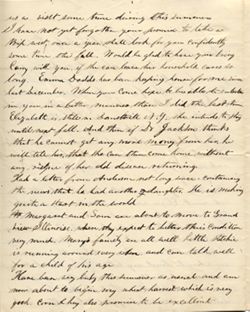 us a visit some time during this summer
I have not yet forgotten your promise to take a
trip west, over a year. Shall look for you confidently
some time this fall. Would be glad to have you bring
Mary with you if she can leave her household cares so
long. Emma Dodds has been keeping house for me since
last December. When you come hope to be able to entertain
you in a better manner than I did the last time
Elizabeth is still in N.Y. she intends to stay
until next fall. And then if Dr Jackson thinks
that he cannot get any more money from her he
will tell her that she can then come home without
any risk of her old disease returning.
Had a letter from Andrew not long since containing
the news that he had another daughter. He is making
quite a start in the world
Margaret and Sam are about to move to Grand
View Illinois, when they expect to better their condition
very much. Marys family are all well little
is running around every where and can talk well
for a child of his age
Have been very busy this summer as usual and am
now about to begin my wheat harvest which is very
good. Corn & hay also promise to be excellent